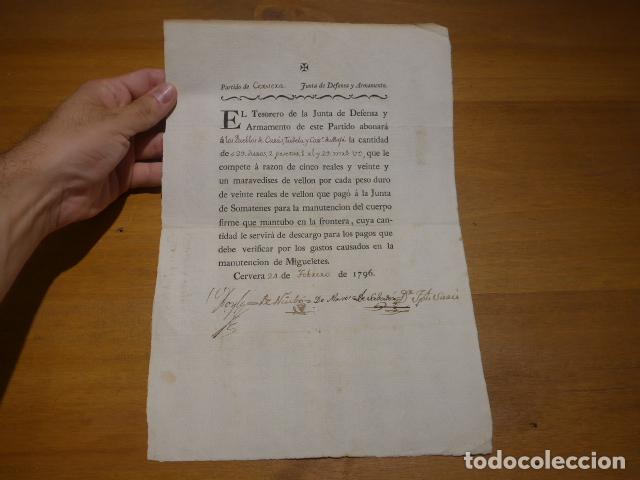 ✠
Partido de Cervera Junta de Defensa y Armamento.
EL Tesorero de la Junta de Defensa y
Armamento de este Partido abonará
á los Pueblos de la cantidad
de 29 duros, 2 pesetas 1 al y 29 que le
compete á razon de cinco reales y veinte y
un maravedises de vellon por cada peso duro
de veinte reales de vellon que pagó á la Junta
de Somatenes para la manutencion del cuerpo
firme que mantubo en la frontera, cuya can-
tidad le servirá de descargo para los pagos que
debe verificar por los gastos causados en la
manutencion de Migueletes.
Cervera 21 de Febrero de 1796.
todocoleccion.net